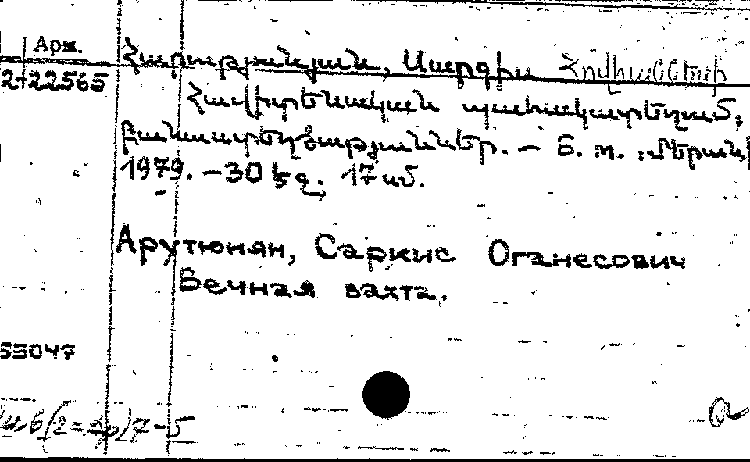 Арм.
2-22565
Հարությունյան, Սարգիս Հովհաննեսի
Հավերժական պահակատեղում,
բանաստեղծություններ. — Б. м. :
1979. — 30 էջ. 17 սմ.
Арутюнян, Саркис Оганесович
Вечная вахта.
55047